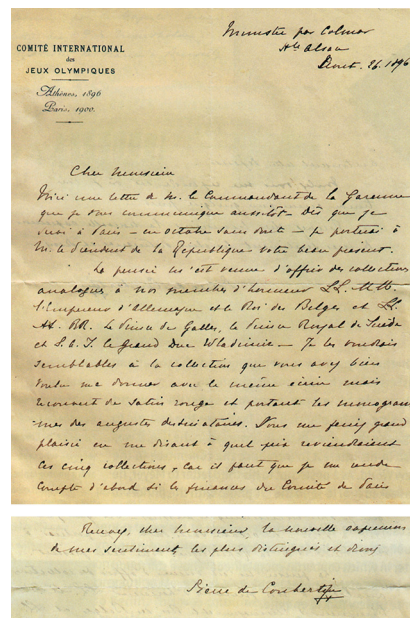 COMITÉ INTERNATIONAL
des
JEUX OLYMPIQUES
Athènes, 1896
Paris, 1900.
Munster par Colmar
Hte Alsace
26. 1896
Cher Monsieur
Voici une lettre de M. le Commandant de la Garenne
que je vous communique aussitôt. Dès que je
serai à Paris – en octobre sans doute – je porterai à
M. le Président de la République votre beau présent.
La pensée m'est venue d'offrir des collections
analogues à nos membres d'honneur LL. MM.
l'Empereur d'Allemagne et le Roi des Belges et LL.
AA. RR. le Prince de Galles, le Prince Royal de Suède
et S. A. I. le Grand Duc Wladimir – Je les voudrais
semblables à la collection que vous avez bien
voulu me donner avec le même écrin mais
recouvert de satin rouge et portant les monogram
mes des augustes destinataires. Vous me feriez grand
plaisir en me disant à quel prix reviendraient
ces cinq collections, car il faut que je me rende
compte d'abord si les finances du Comité de Paris
Recevez, cher Monsieur, la nouvelle expression
de mes sentiments les plus distingués et
Pierre de Coubertin